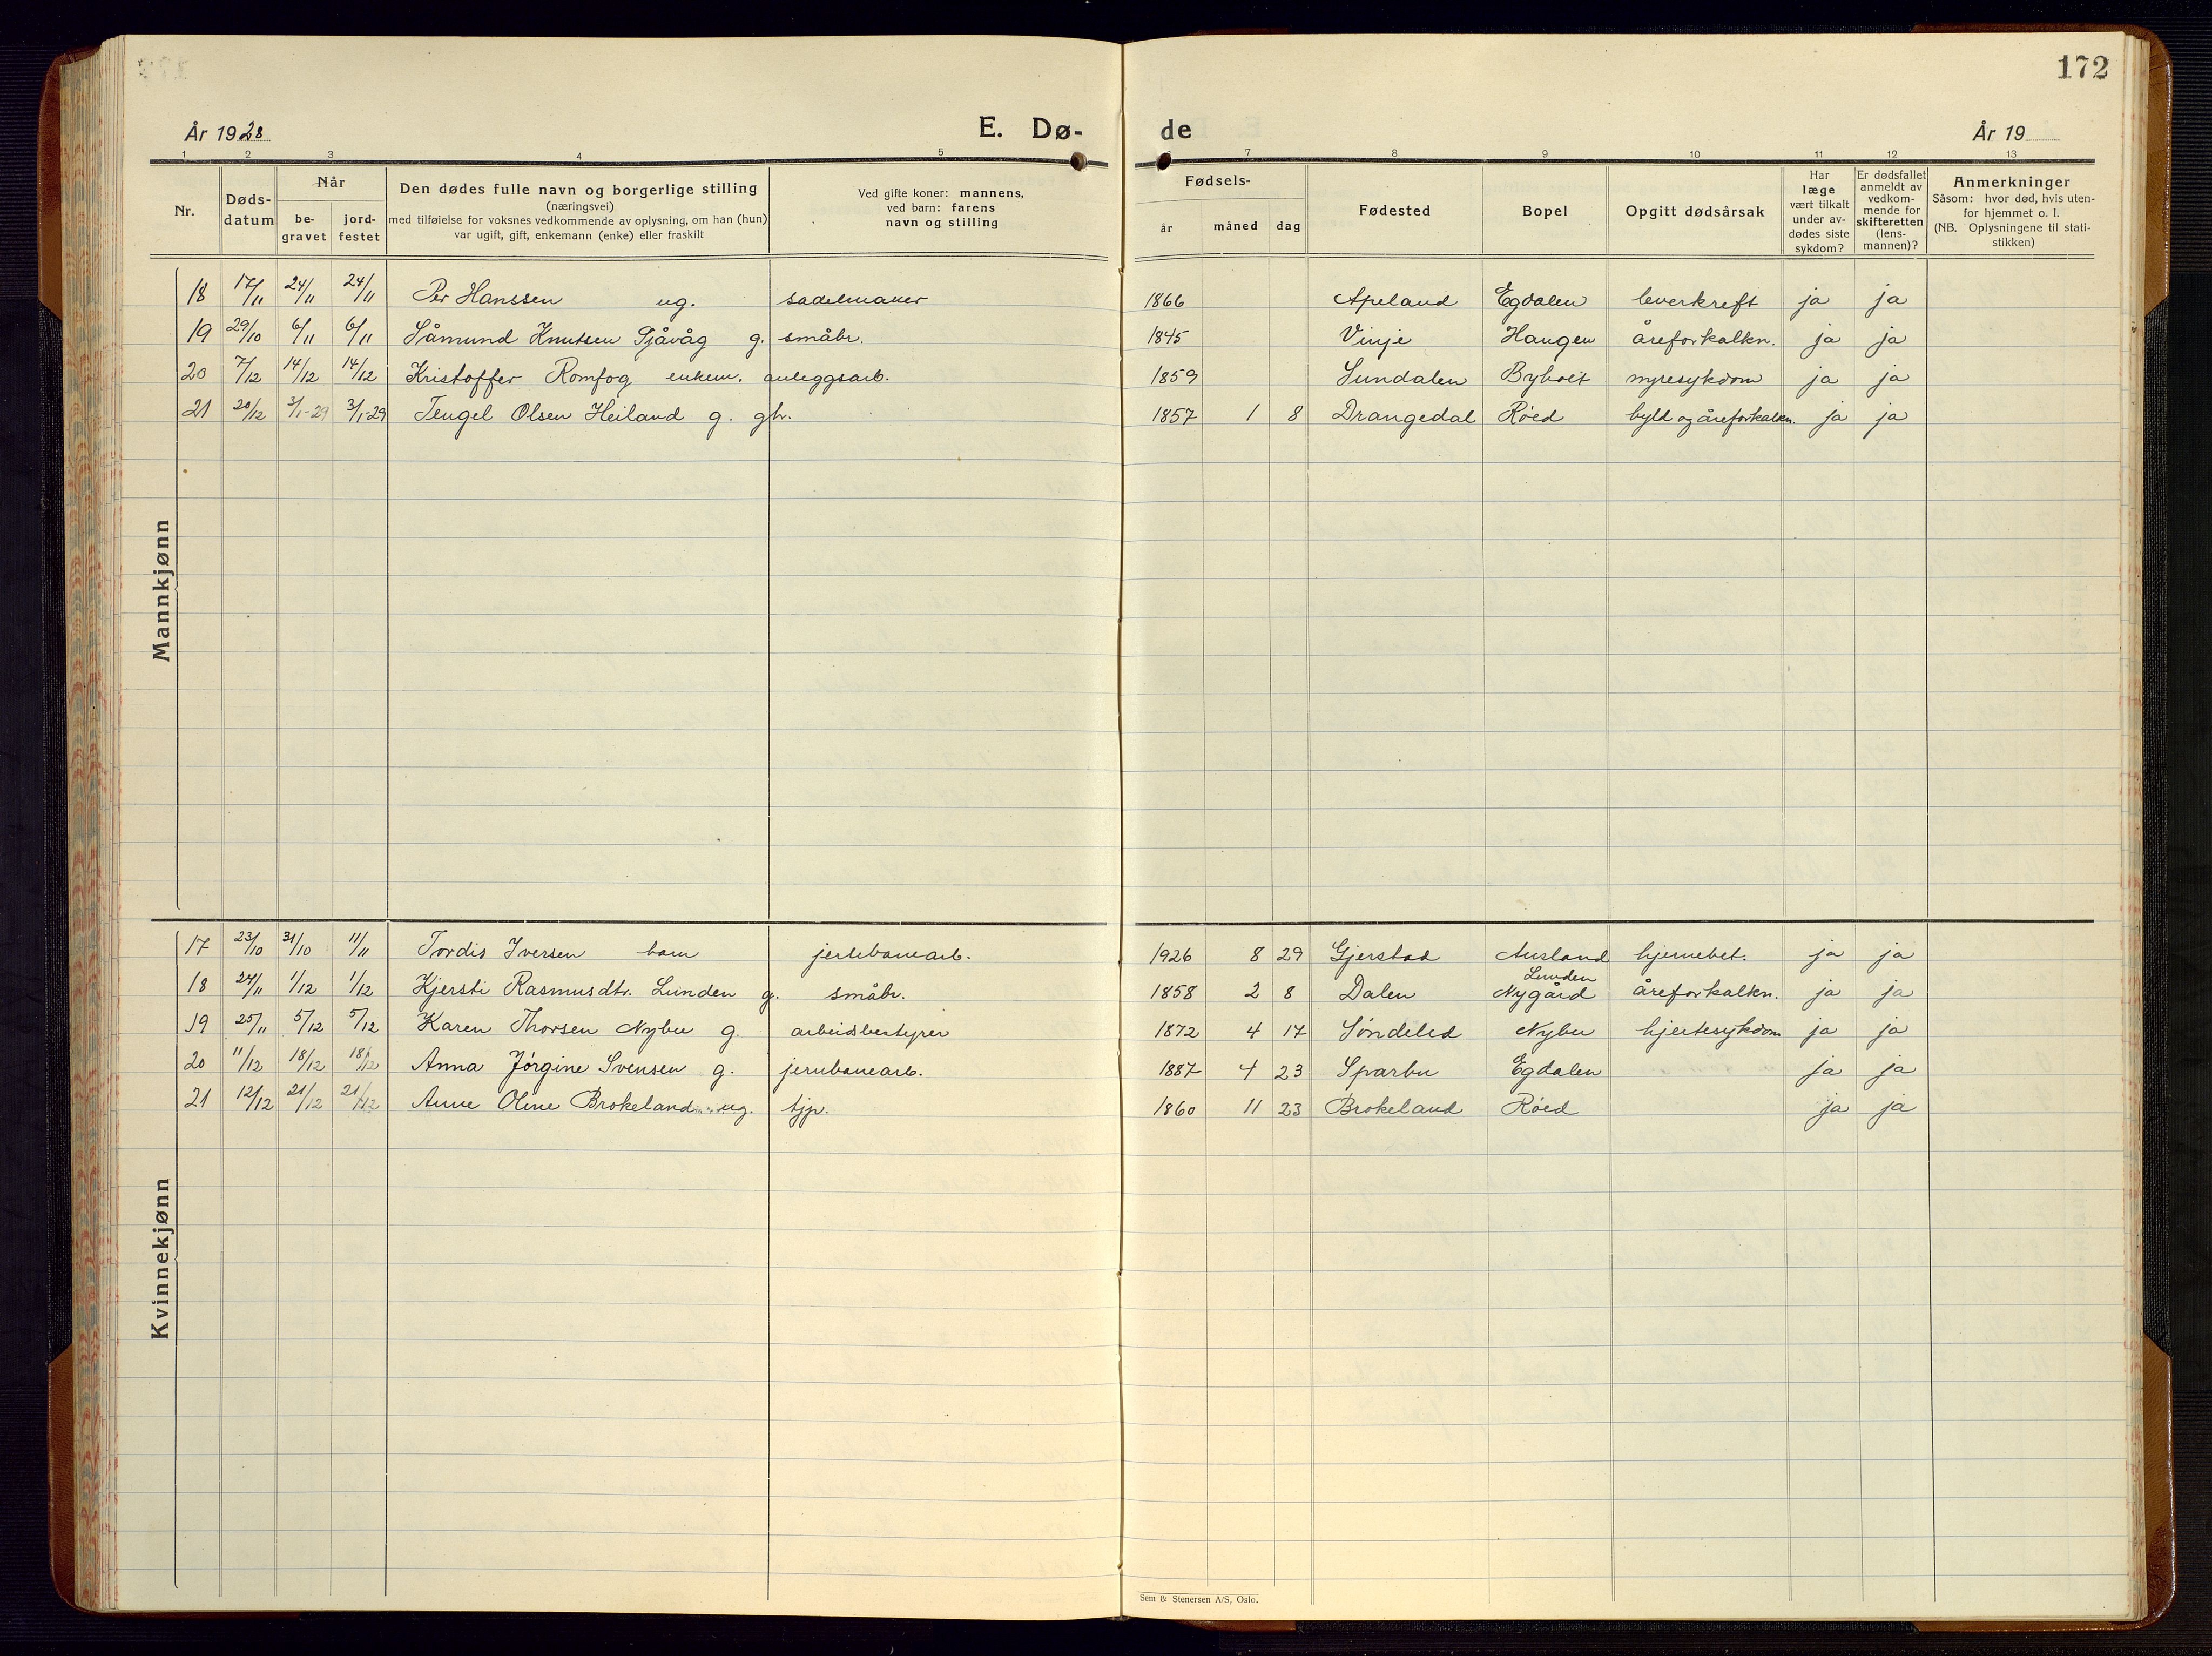 172
År 1928
E. Dø-
de
År 19
1 2 3 4 5
6 7 8 9 10 11 12 13
Nr.
Døds-
datum
Når
be-
gravet
jord-
festet
Den dødes fulle navn og borgerlige stilling
(næringsvei)
med tilføielse for voksnes vedkommende av oplysning, om han (hun)
var ugift, gift, enkemann (enke) eller fraskilt
Ved gifte koner: mannens,
ved barn: farens
navn og stilling
Fødsels-
år
måned
dag
Fødested
Bopel
Opgitt dødsårsak
Har
læge
vært tilkalt
under av-
dødes siste
sykdom?
Er dødsfallet
anmeldt av
vedkom-
mende for
skifteretten
(lens-
mannen)?
Anmerkninger
Såsom: hvor død, hvis uten-
for hjemmet o. l.
(NB. Oplysningene til stati-
stikken)
Mannkjønn
18 17/11 24/11 24/11 Per Hanssen ug. sadelmaker 1866 Apeland Egdalen leverkreft ja ja
19 29/10 6/11 6/11 Såmund Knutsen g. småbr. 1845 Vinje Haugen åreforkalkn. ja ja
20 7/12 14/12 14/12 Kristoffer Romfog enkem. anleggsarb. 1859 Sundalen Byholt nyresykdom ja ja
21 20/12 3/1-29 3/1-29 Tengel Olsen Heiland g. gbr. 1857 1 8 Drangedal Røed byld og åreforkalkn. ja ja
Kvinnekjønn
17 23/10 31/10 11/11 Tordis Iversen barn jernbanearb. 1926 8 29 Gjerstad Ausland hjernebet. ja ja
Lunden
18 24/11 1/12 1/12 Kjersti Rasmusdtr. Lunden g. småbr. 1858 2 8 Dalen Nygård åreforkalkn. ja ja
19 25/11 5/12 5/12 Karen Thorsen Nybu g. arbeidsbestyrer 1872 4 17 Søndeled Nybu hjertesykdom ja ja
20 11/12 18/12 18/12 Anna Jørgine Svensen g. jernbanearb. 1887 4 23 Sparbu Egdalen ja ja
21 12/12 21/12 21/12 Anne Oline Brokeland ug. tjp. 1860 11 23 Brokeland Røed ja ja
Sem & Stenersen A/S, Oslo.